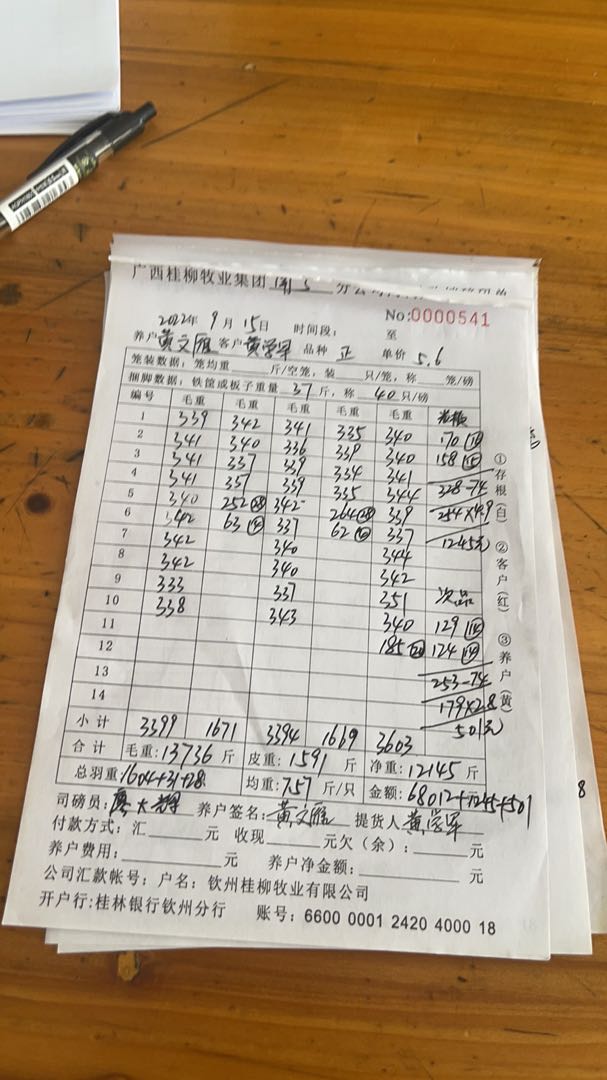 广西桂柳牧业集团
No:0000541
2022年9月15日 时间段: 至
养户黄文雁 客户黄学军 品种 正 单价 5.6
笼装数据: 笼均重 斤/空笼, 装 只/笼, 称 笼/磅
捆脚数据: 铁筐或板子重量 37 斤, 称 40 只/磅
编号 毛重 毛重 毛重 毛重 毛重
1 339 342 341 335 340 170
2 341 340 336 339 340 158 15
3 341 337 339 334 341 328-74
4 341 357 339 335 344 254×4.9
5 340 252 342 264 339 1245元
6 342 63 337 62 337
7 342 340 344
8 342 340 342
9 333 337 351 次品
10 338 343 340 129
11 185 124
12 253-74
13 179×2.8
14 501元
小计 3399 1671 3394 1669 3603
合计 毛重:13736 斤 皮重:1591 斤 净重:12145 斤
总羽重:1604+31+28 均重:7.57 斤/只 金额:68012+1245+501
司磅员: 养户签名:黄文雁 提货人 黄学军
付款方式: 汇 元 收现 元欠(余): 元
养户费用: 元 养户净金额: 元
公司汇款帐号: 户名: 钦州桂柳牧业有限公司
开户行:桂林银行钦州分行 账号: 6600 0001 2420 4000 18
①存根(白) ②客户(红) ③养户(黄)